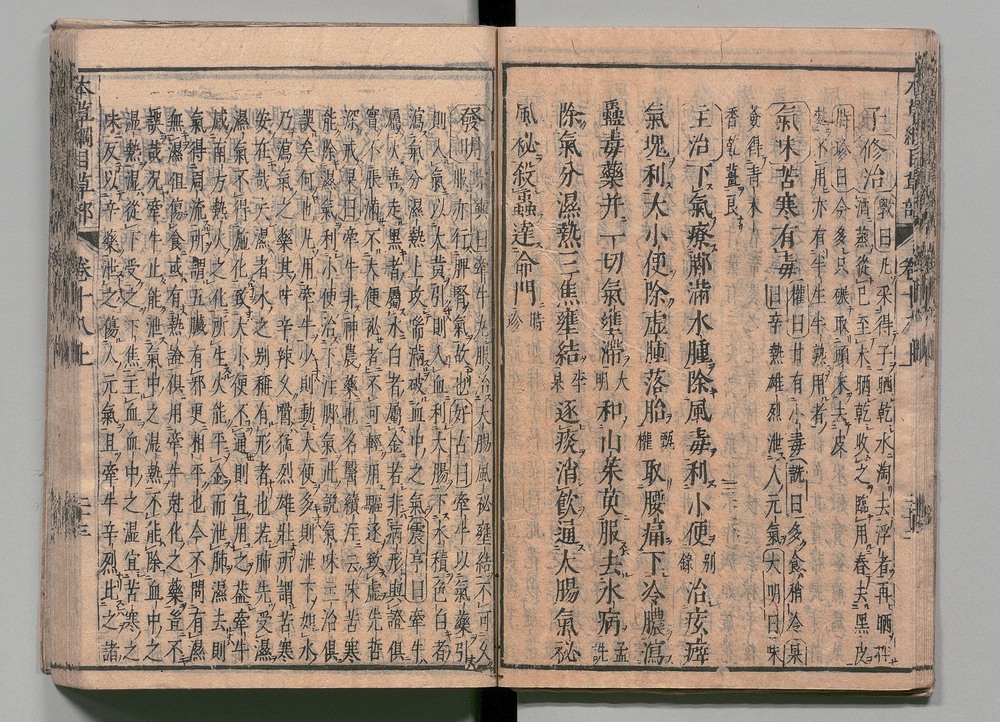 子修治斅曰凡采得子晒乾水淘去浮者再晒拌
酒蒸從巳至未晒乾收之臨用舂去黑皮
時珍曰今多只碾取頭末去皮
麩不用亦有半生半熟用者
氣味苦寒有毒權曰甘有小毒詵曰多食稍冷杲
曰辛熱雄烈泄人元氣大明曰味
莶得青木
香乾薑良
主治下氣療脚滿水腫除風毒利小便別錄治痃癖
氣塊利大小便除虛腫落胎甄權取腰痛下冷膿瀉
蠱毒藥并一切氣壅滯大明和山茱萸服去水病孟詵
除氣分濕熱三焦壅結李杲逐痰消飲通大腸氣秘
風秘殺蟲達命門時珍
發明震亨曰牽牛丸服治大腸風秘壅結不可久
服亦行脾腎氣故也好古曰牽牛以氣藥引
則入氣以大黃引則入血利大腸下水積色白者
瀉氣分濕熱上攻喘滿破血中之氣震亨曰牽牛
屬火善走黑者屬水白者屬金若非病形與證俱
實不脹滿不大便秘者不可輕用驅逐致虛先哲
深戒杲曰牽牛非神農藥也名醫續注云味苦寒
能除濕氣利小便治下注脚氣此說氣味主治俱
誤矣何也凡用牽牛少則動大便多則泄下如水
乃瀉氣之藥其味辛辣久嚼猛烈雄壯所謂苦寒
安在哉夫濕者水之別稱有形者也若肺先受濕
濕氣不得施化致大小便不通則宜用之蓋牽牛
感南方熱火之化所生火能平金而泄肺濕去則
氣得周流所謂五臟有邪更相平也今不問有濕
無濕但傷食或有熱證俱用牽牛尅化之藥豈不
誤哉況牽牛止能泄氣中之濕熱不能除血中之
濕熱濕從下受之下焦主血血中之濕宜苦寒之
味反以辛藥泄之傷人元氣且牽牛辛烈比之諸
本草綱目草部
卷十八上